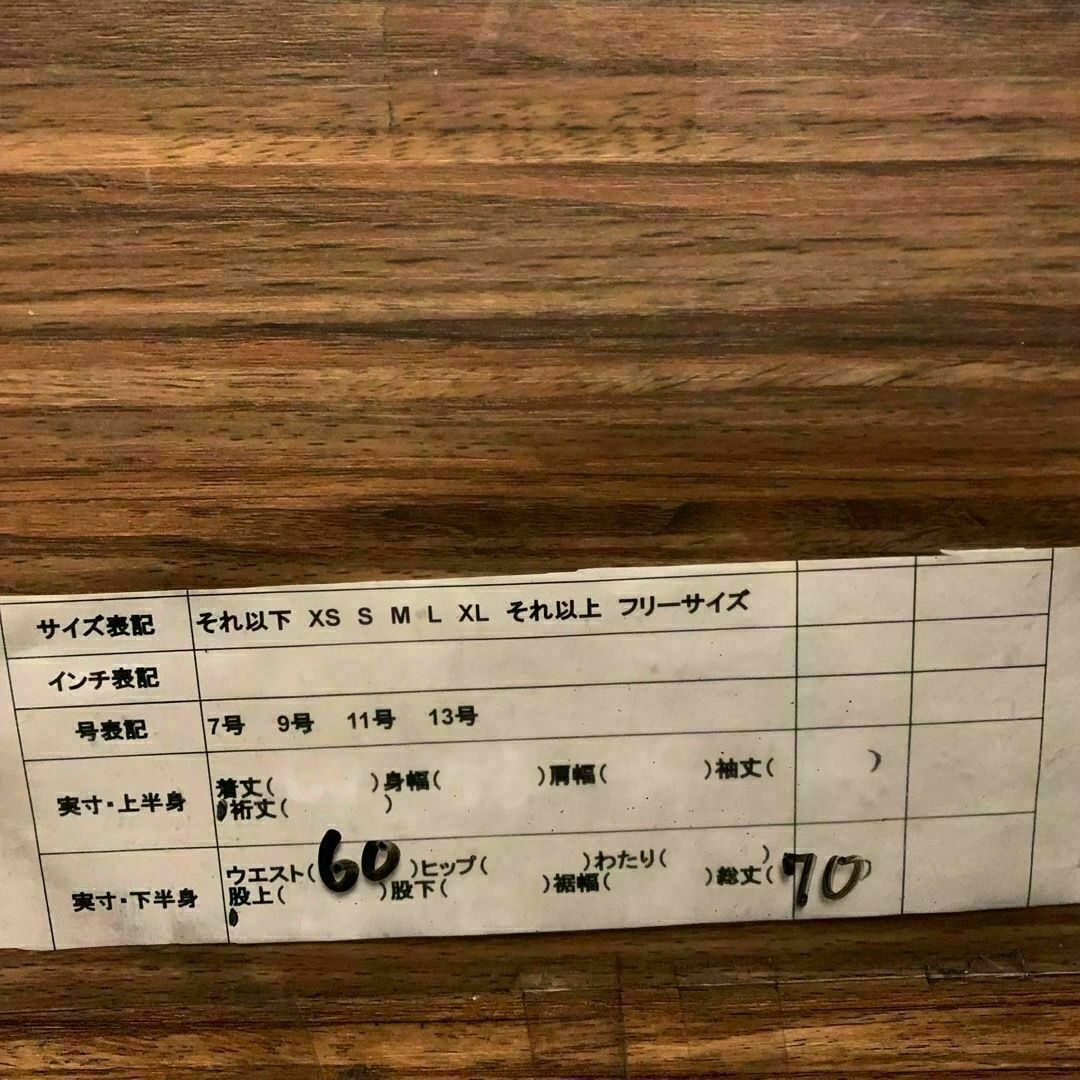 サイズ表記 それ以下 XS S M L XL それ以上 フリーサイズ
インチ表記
号表記 7号 9号 11号 13号
実寸・上半身 着丈( )身幅( )肩幅( )袖丈( )
裄丈( )
実寸・下半身 ウエスト(60)ヒップ( )わたり( )
股上( )股下( )裾幅( )総丈(70)